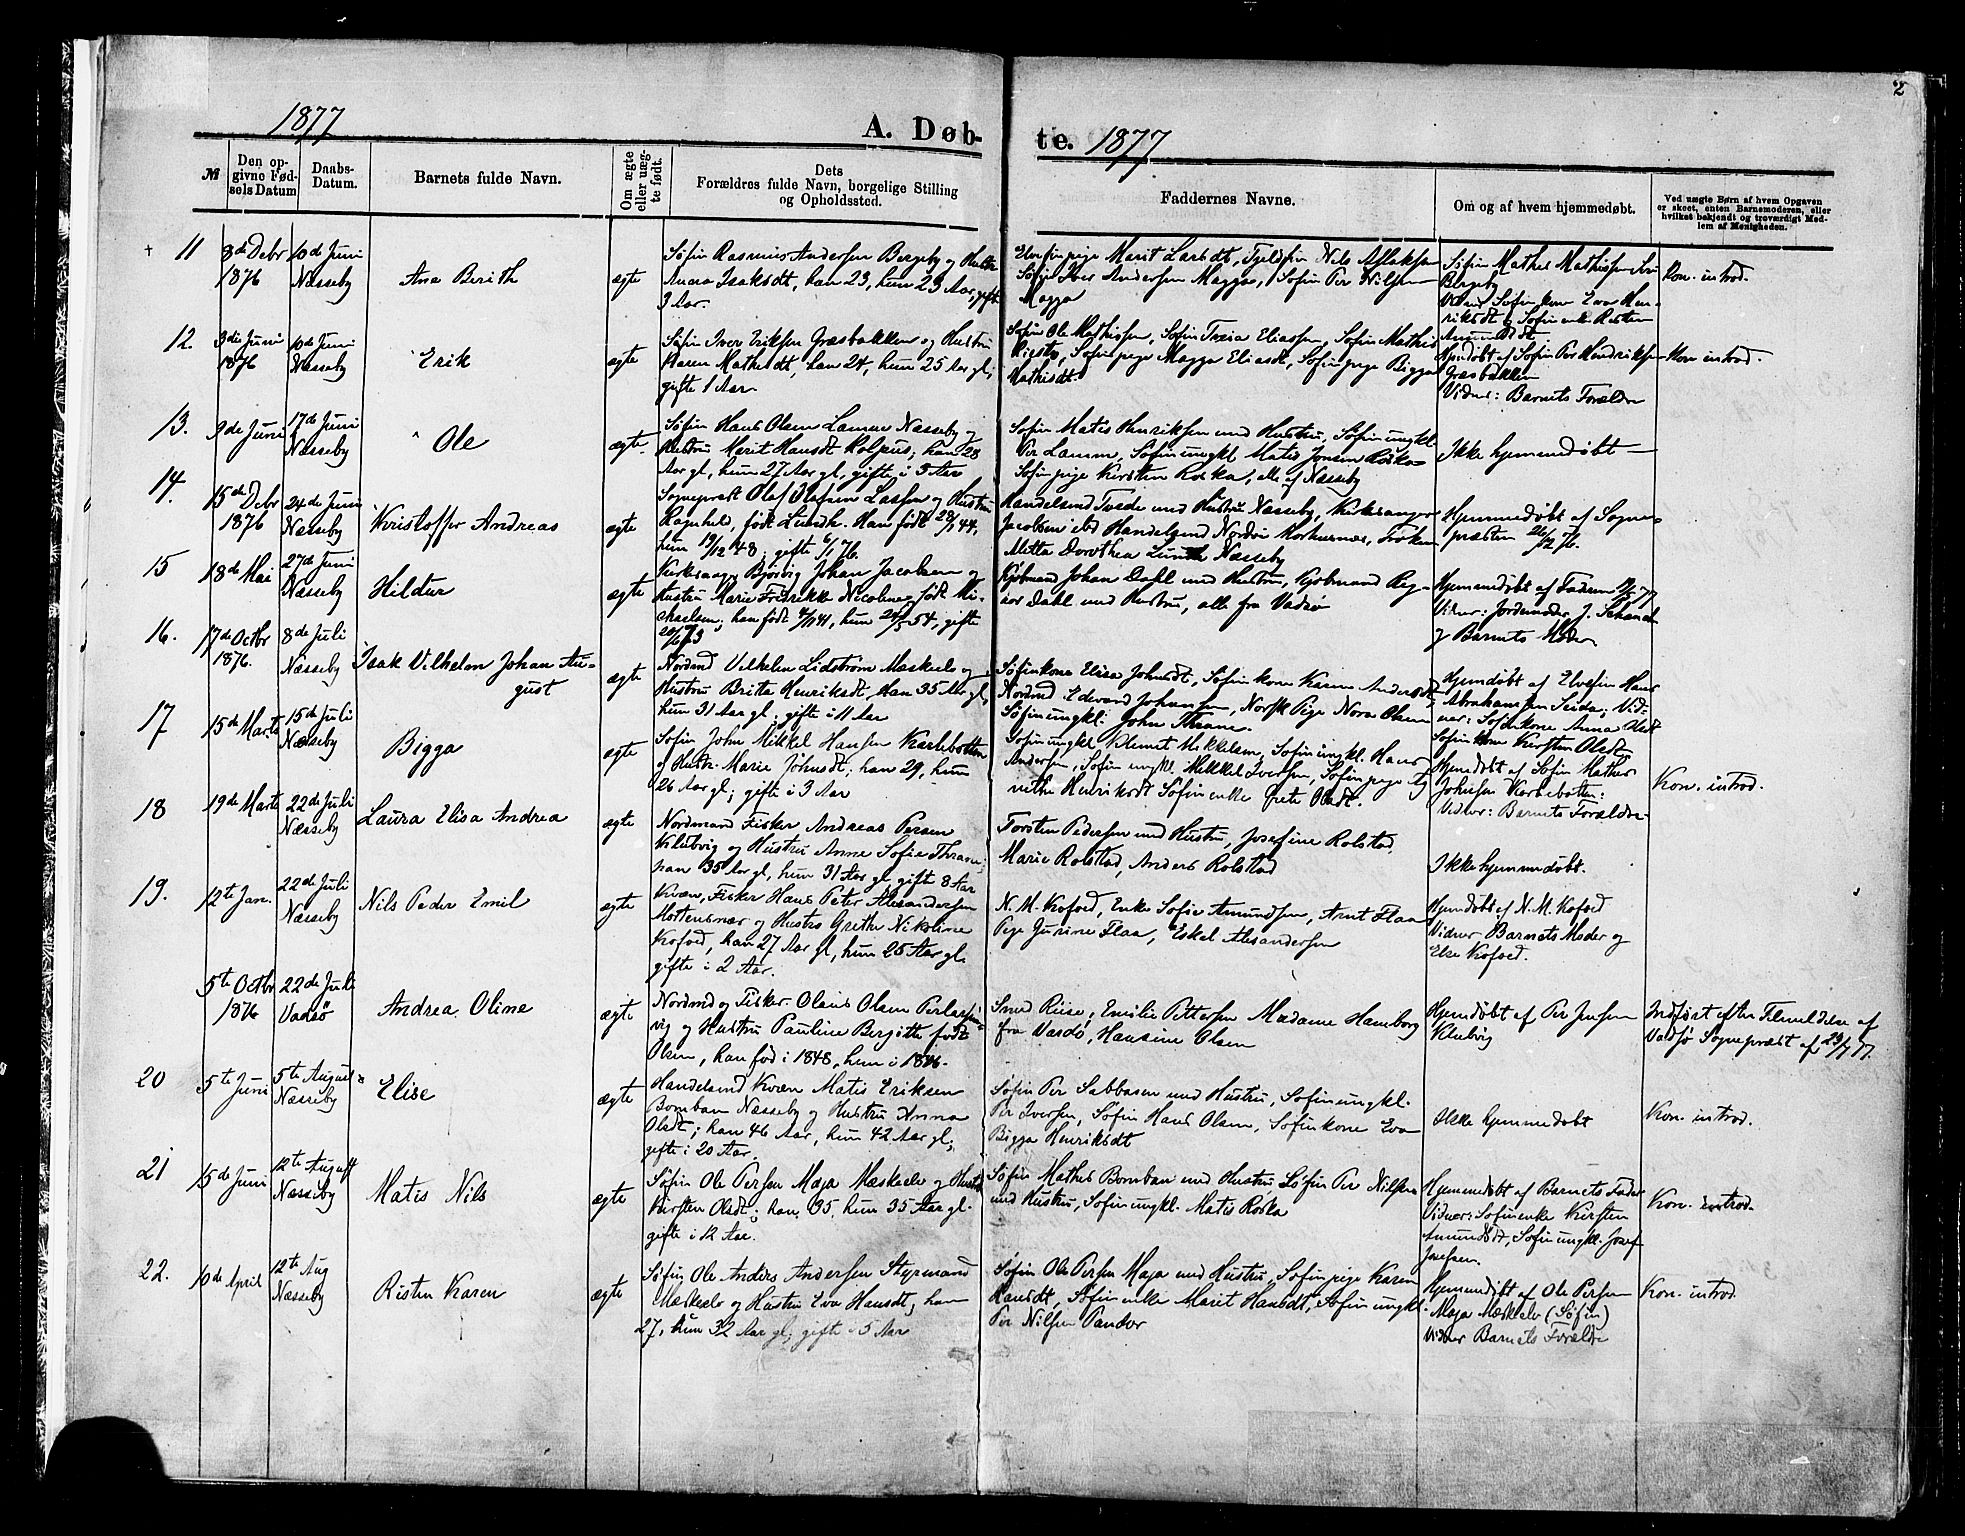 2
1877
A. Døb-
te. 1877
№
Den op-
givne Fød-
sels Datum
Daabs-
Datum.
Barnets fulde Navn.
Om ægte
eller uæg-
te født.
Dets
Forældres fulde Navn, borgelige Stilling
og Opholdssted.
Faddernes Navne.
Om og af hvem hjemmedøbt.
Ved uægte Børn af hvem Opgaven
er skeet, enten Barnemoderen, eller
hvilket bekjendt og troværdigt Med-
lem af Menigheden.
11
8de Debr
1876
10de Juni
Næsseby
Ana Berith
ægte
Søfin Rasmus Andersen Bergeby og Hustru
Anna Isaksdt, han 23, hun 23 Aar, gift
3 Aar.
pige Marit Larsdt, Fjeldfin Nils Aslaksen
Søfin Iver Andersen Magga, Søfin Per Nilsen
Magga
Søfin Mathis Mathisen
Bergeby
Vidner Søfinkone Eva Hen-
riksdt og Søfinenke Risten
Amundsdt
Kon. introd.
12.
3die Juni
1876
10de Juni
Næsseby
Erik
ægte
Søfin Iver Eriksen Græsbakken og Hustru
Karen Mathisdt, han 24, hun 25 Aar gl,
gifte 1 Aar
Søfin Ole Mathisen, Søfin Eliassen, Søfin Mathis
Søfinpige Magga Eliasdt, Søfinpige Bigga
Mathisdt.
Hjemdøbt af Søfin Per Hendriksen
Græsbakken
Vidner: Barnets Forældre
Kon introd.
13.
9de Juni
17de Juni
Næsseby
Ole
ægte.
Søfin Hans Olsen Lamme Næsseby og
Hustru Marit Hansdt Kolpus; han 28
Aar gl, hun 27 Aar gl, gifte i 5 Aar
Søfin Matis Henriksen med Hustru, Søfinungkl
Per Lamm, Søfinungkl Matis Jonsen Roska
Søfinpige Kirsten Roska, alle af Næsseby
Ikke hjemmedøbt —
14.
15de Debr
1876
24de Juni
Næsseby
Kristoffer Andreas
ægte
Sogneprest Olaf Olafsen Lassen og Hustru
Ragnhild, født Lundh. Han født 28/1 44,
hun 19/12 48; gifte 6/1 76.
Handelsmd Tvede med Hustru Næsseby, Kirkesanger
Jacobsen ibd Handelsmd Nordvi Mortensnæs, Frøken
Mette Dorothea Lundh Næsseby
Hjemmedøbt af Sogne-
præsten 26/12 76.
15
18de Mai
27de Juni
Næsseby
Hildur
ægte
Kirkesanger Bjørvig Johan Jacobsen og
Hustru Marie Fredrikke Nicoline født Mi-
chaelsen; han født 4/1 41, hun 24/5 54, gifte
20/6 73
Kjøbmand Johan Dahl med Hustru, Kjøbmand
Dahl med Hustru, alle fra Vadsø
Hjemmedøbt af Faderen
Vidner: Jordemoder J. Schanche
og Barnets Moder
16.
17de Octbr
1876.
8de Juli
Næsseby
Isak Vilhelm Johan Au-
gust
ægte
Nordmd Vilhelm Lidstrøm Mæskelv og
Hustru Britta Henriksdt, Han 35 Aar gl,
hun 31 Aar gl, gifte i 11 Aar
Søfinkone Elisa Johnsdt, Søfinkone Karen Andersdt,
Nordmd Edevard Johansen, Norsk Pige Nora Olsen
Søfinungkl: John Thrane.
Hjemdøbt af Elvefin Hans
Abrahamsen Seida; Vid-
ner: Søfinkone Anna Olsdt
Søfinkone Kirsten Olsdt
17
15de Marts
15de Juli
Næsseby
Bigga
ægte
Søfin John Mikkel Hansen Karlebotten
og Hustr. Marie Johnsdt; han 29, hun
26 Aar gl; gifte i 3 Aar
Søfinungkl Klemet Mikkelsen, Søfinungkl. Hans
Andersen, Søfin ungkl. Mikkel Iversen, Søfinpige
Henriksdt Søfinenke Grete Olsdt.
Hjemdøbt af Søfin Mathis
Johnsen Karlebotten:
Vidner: Barnets Forældre
Kon. introd.
18
19de Marts
22de Juli
Næsseby
Laura Elisa Andrea
ægte
Nordmand Fisker Andreas Persen
Klubvig og Hustru Anne Sofie Thrane;
han 35 Aar gl, hun 31 Aar gl gift 8 Aar
Torsten Pedersen med Hustru, Josefine Rolstad,
Marie Rolstad, Anders Rolstad
Ikke hjemmedøbt.
19.
12te Jan.
22de Juli
Næsseby
Nils Peder Emil
ægte
Kvæn, Fisker Hans Peter Alexandersen
Mortensnær og Hustru Grethe Nikoline
Kofoed, han 27 Aar gl, hun 25 Aar gl.
gifte i 2 Aar.
N. M. Kofoed, Enke Sofie Amundsen, Arnt Flaa
Pige Jurine Flaa, Eskel Alexandersen
Hjemdøbt af N. M. Kofoed
Vidner Barnets Moder og
Else Kofoed.
5te Octbr
1876
22de Juli
Vadsö
Andrea Oline
ægte
Nordmd og Fisker Olaus Olsen
vig og Hustru Pauline Bergitte født
Olsen, han fød i 1848, hun i 1846.
Smed Riise, Emilie Pettersen Madame Hamborg
fra Vardø, Hansine Olsen
Hjemdøbt af Per Jensen
Klubvig
Indført efter Tilmeldelse af
Vadsø Sognepræst af 23/7 77.
20
5te Juni
5te August
Næsseby
Elise
ægte
Handelsmd Kvæn Matis Eriksen
Bomban Næsseby og Hustru Anna
Olsdt; han 46 Aar, hun 42 Aar gl;
gifte i 20 Aar.
Søfin Per Sabbasen med Hustru, Søfinungkl.
Per Iversen, Søfin Hans Olsen, Søfinkone Eva
Bigga Henriksdt
Ikke hjemmedøbt
Kon. introd.
21
15de Juni
12te August
Næsseby
Matis Nils
ægte
Søfin Ole Persen Maja Mæskelv og Hustru
Kirsten Olsdt; han 35, hun 35 Aar gl.
gifte i 12 Aar.
Søfin Mathis Bomban med Hustru, Søfin Per Nilsen
med Hustru, Søfinungkl. Matis Roska
Hjemmedøbt af Barnets Fader
Vidner: Søfinenke Kirsten
Amundsdt, Søfinungkl. Josef
Josefsen.
Kon. introd.
22.
10de April
12te Aug
Næsseby
Risten Karen
ægte
Søfin Ole Anders Andersen Styrmand
Mæskelv og Hustru Eva Hansdt, han
27, hun 32 Aar gl, gifte i 5 Aar
Søfin Ole Persen Maja med Hustru, Søfinpige Karen
Hansdt, Søfinenke Marit Hansdt, Søfinungkl.
Per Nilsen Pandor
Hjemmedøbt af Ole Persen
Maja Mæskelv (Søfin)
Vidner Barnets Forældre
Kon. introd.